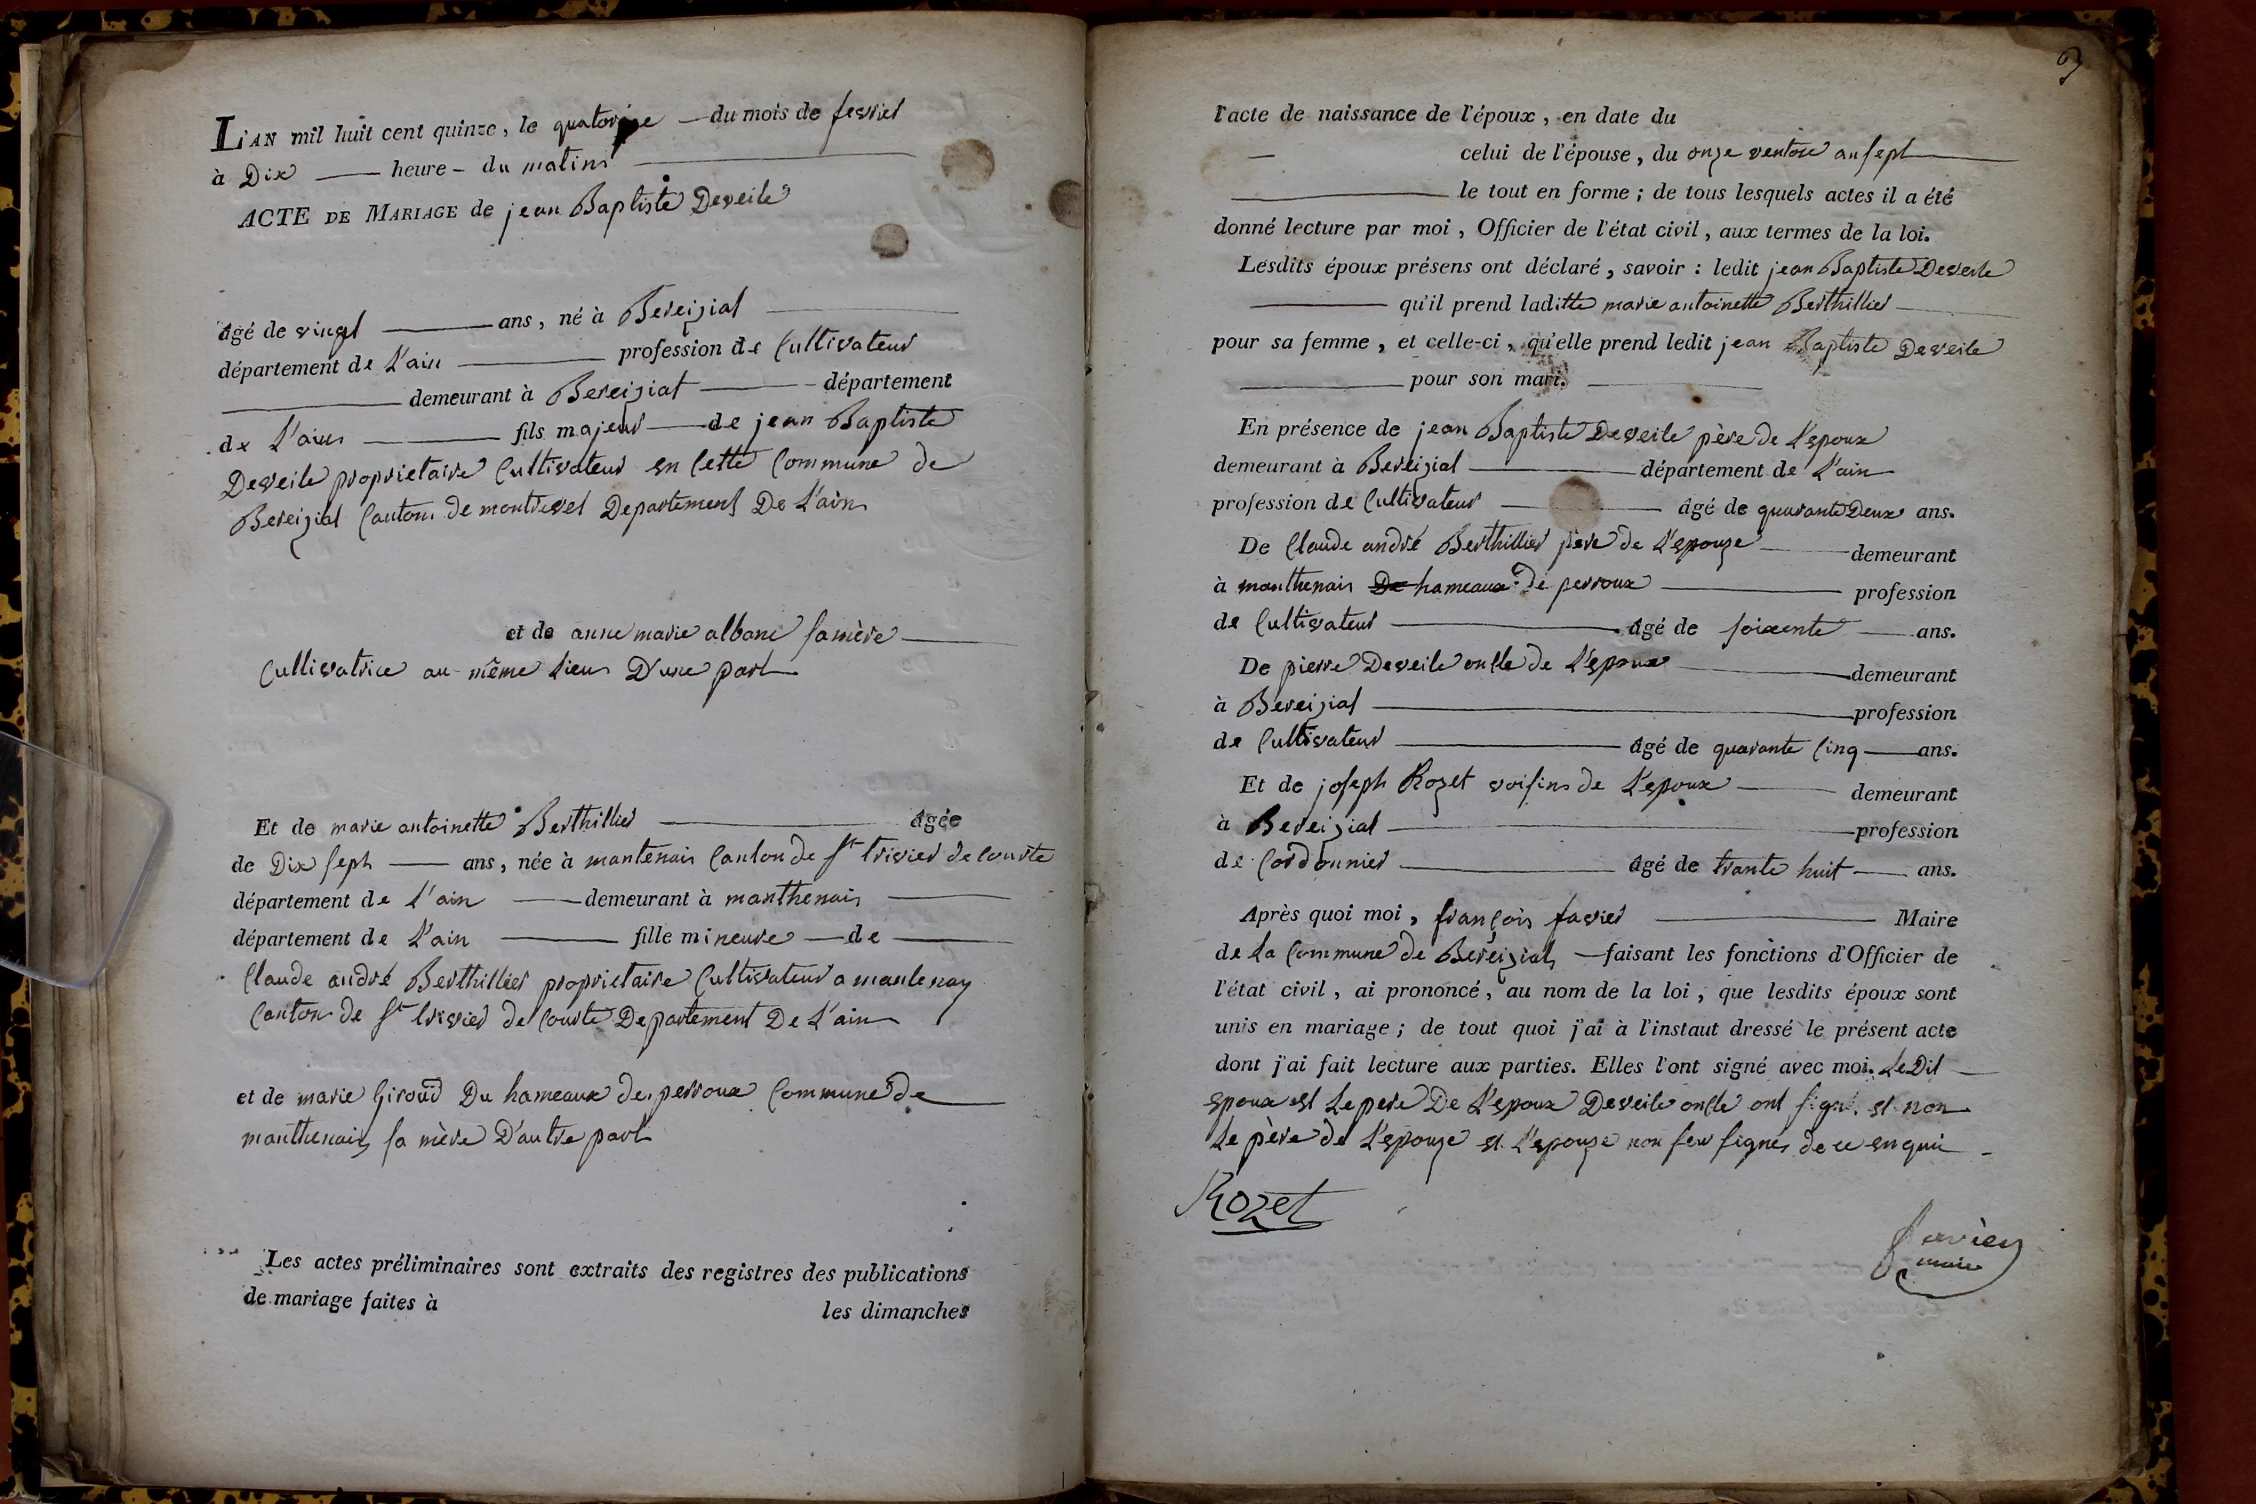 L'AN mil huit cent quinze, le quatorze du mois de fevrier
à Dix heure du matin
ACTE DE MARIAGE de jean Baptiste Deveile
âgé de vingt ans, né à Bereiziat
département de L'ain profession de Cultivateur
demeurant à Bereiziat département
de L'ain fils majeur de jean Baptiste
Deveile proprietaire Cultivateur en Cette Commune de
Bereiziat Canton de montrevel Departement De L'ain
et de anne marie albane sa mère
Cultivatrice au même Lieu D'une part
Et de marie antoinette Berthillier âgée
de Dix sept ans, née à mantenais Canton de St trivier de Courte
département de L'ain demeurant à manthenais
département de L'ain fille mineure de
Claude andré Berthillier proprietaire Cultivateur a mantenay
Canton de St trivier de Courte Departement De L'ain
et de marie Giroud Du hameaux de perroux Commune de
manthenais sa mère D'autre part
Les actes préliminaires sont extraits des registres des publications
de mariage faites à les dimanches
3
l'acte de naissance de l'époux, en date du
celui de l'épouse, du onze ventose an sept
le tout en forme; de tous lesquels actes il a été
donné lecture par moi, Officier de l'état civil, aux termes de la loi.
Lesdits époux présens ont déclaré, savoir: ledit jean Baptiste Deveile
qu'il prend laditte marie antoinette Berthillier
pour sa femme, et celle-ci, qu'elle prend ledit jean Baptiste Deveile
pour son mari.
En présence de jean Baptiste Deveile père de L'epoux
demeurant à Bereiziat département de L'ain
profession de Cultivateur âgé de quarante Deux ans.
De Claude andré Berthillier père de L'epouze demeurant
à manthenais De hameaux de perroux profession
de Cultivateur âgé de soixente ans.
De pierre Deveile oncle de L'epoux demeurant
à Bereiziat profession
de Cultivateur âgé de quarante Cinq ans.
Et de joseph Rozet voisin de L'epoux demeurant
à Bereiziat profession
de Cordonnier âgé de trante huit ans.
Après quoi moi, françois favier Maire
de La Commune de Bereiziat faisant les fonctions d'Officier de
l'état civil, ai prononcé, au nom de la loi, que lesdits époux sont
unis en mariage; de tout quoi j'ai à l'instant dressé le présent acte
dont j'ai fait lecture aux parties. Elles l'ont signé avec moi. Le Dit
epoux et Le pere De L'epoux Deveile oncle ont signé et non
Le père de L'epouze et L'epouze non seu signer de ce enquis
Rozet
favier
maire